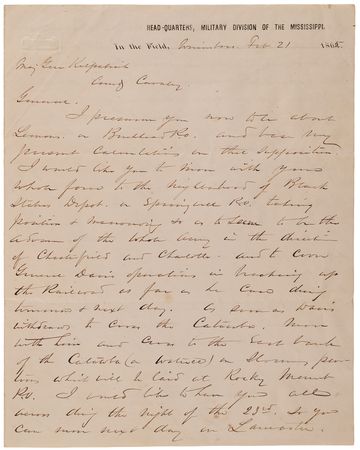 HEAD-QUARTERS, MILITARY DIVISION OF THE MISSISSIPPI,
In the Field, Winnsboro Feb 21 1865
Maj Gen Kilpatrick
Comdg Cavalry
General
I presume you now to be about
Lemons. or Bullard Ro. and base my
present Calculations on that supposition.
I would like you to move with your
whole force to the neighborhood of Black
Stakes Depot. or Springwell Ro. taking
position & maneuvring so as to seem to be the
advance of the whole army in the direction
of Chesterfield and Charlotte. and to cover
General Davis operations in breaking up
the Railroad as far as he can during
tomorrow & next day. As soon as Davis
withdraws to cross the Catawba. Move
with him and cross to the East bank
of the Catawba (or Wateree) on
which will be laid at Rocky Mount
Ro. I would like to have you all
across during the night of the 23rd. so you
can move next day on Lancaster.